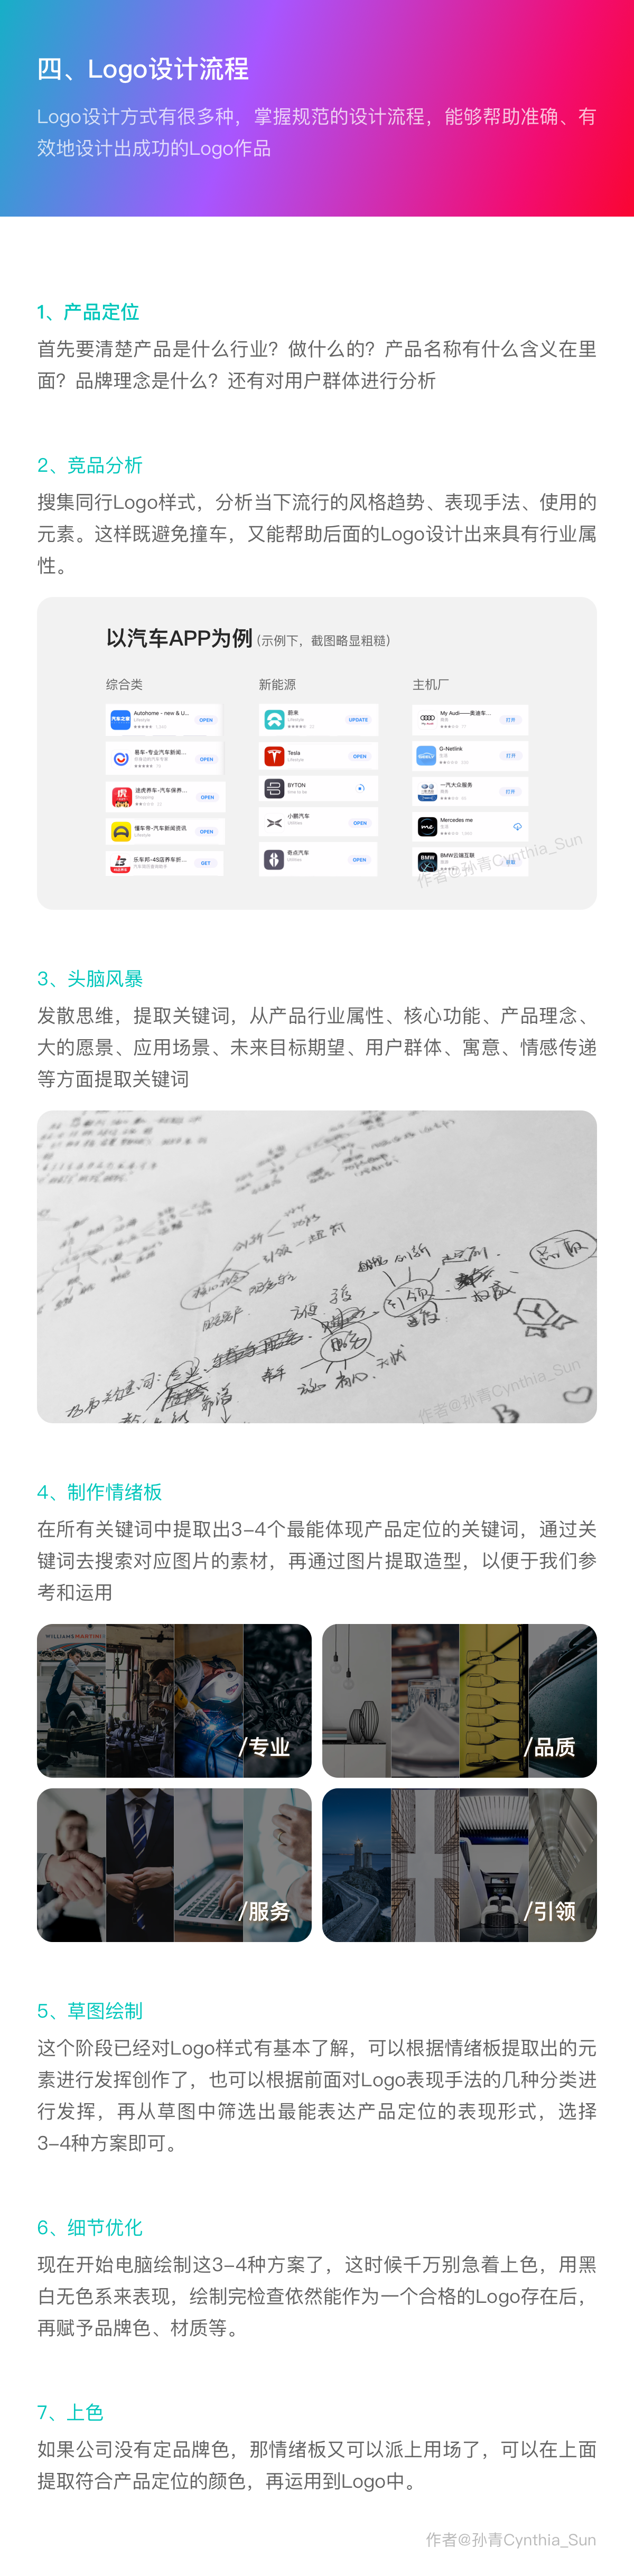 四、Logo设计流程
Logo设计方式有很多种，掌握规范的设计流程，能够帮助准确、有
效地设计出成功的Logo作品
1、产品定位
首先要清楚产品是什么行业？做什么的？产品名称有什么含义在里
面？品牌理念是什么？还有对用户群体进行分析
2、竞品分析
搜集同行Logo样式，分析当下流行的风格趋势、表现手法、使用的
元素。这样既避免撞车，又能帮助后面的Logo设计出来具有行业属
性。
以汽车APP为例（示例下，截图略显粗糙）
综合类
汽车之家
Autohome - new & U...
Lifestyle
OPEN
易车-专业汽车新闻...
OPEN
途虎养车-汽车保养...
Shopping
OPEN
懂车帝-汽车新闻资讯
Lifestyle
OPEN
乐车邦-4S店养车折...
GET
新能源
蔚来
Lifestyle
UPDATE
Tesla
Lifestyle
OPEN
BYTON
小鹏汽车
Utilities
OPEN
奇点汽车
Utilities
OPEN
主机厂
My Audi——奥迪车...
打开
G-Netlink
打开
一汽大众服务
打开
me
Mercedes me
BMW
BMW云端互联
作者@孙青Cynthia_Sun
3、头脑风暴
发散思维，提取关键词，从产品行业属性、核心功能、产品理念、
大的愿景、应用场景、未来目标期望、用户群体、寓意、情感传递
等方面提取关键词
引领
服务
作者@孙青Cynthia_Sun
4、制作情绪板
在所有关键词中提取出3-4个最能体现产品定位的关键词，通过关
键词去搜索对应图片的素材，再通过图片提取造型，以便于我们参
考和运用
WILLIAMS MARTINI
/专业
/品质
/服务
/引领
5、草图绘制
这个阶段已经对Logo样式有基本了解，可以根据情绪板提取出的元
素进行发挥创作了，也可以根据前面对Logo表现手法的几种分类进
行发挥，再从草图中筛选出最能表达产品定位的表现形式，选择
3-4种方案即可。
6、细节优化
现在开始电脑绘制这3-4种方案了，这时候千万别急着上色，用黑
白无色系来表现，绘制完检查依然能作为一个合格的Logo存在后，
再赋予品牌色、材质等。
7、上色
如果公司没有定品牌色，那情绪板又可以派上用场了，可以在上面
提取符合产品定位的颜色，再运用到Logo中。
作者@孙青Cynthia_Sun